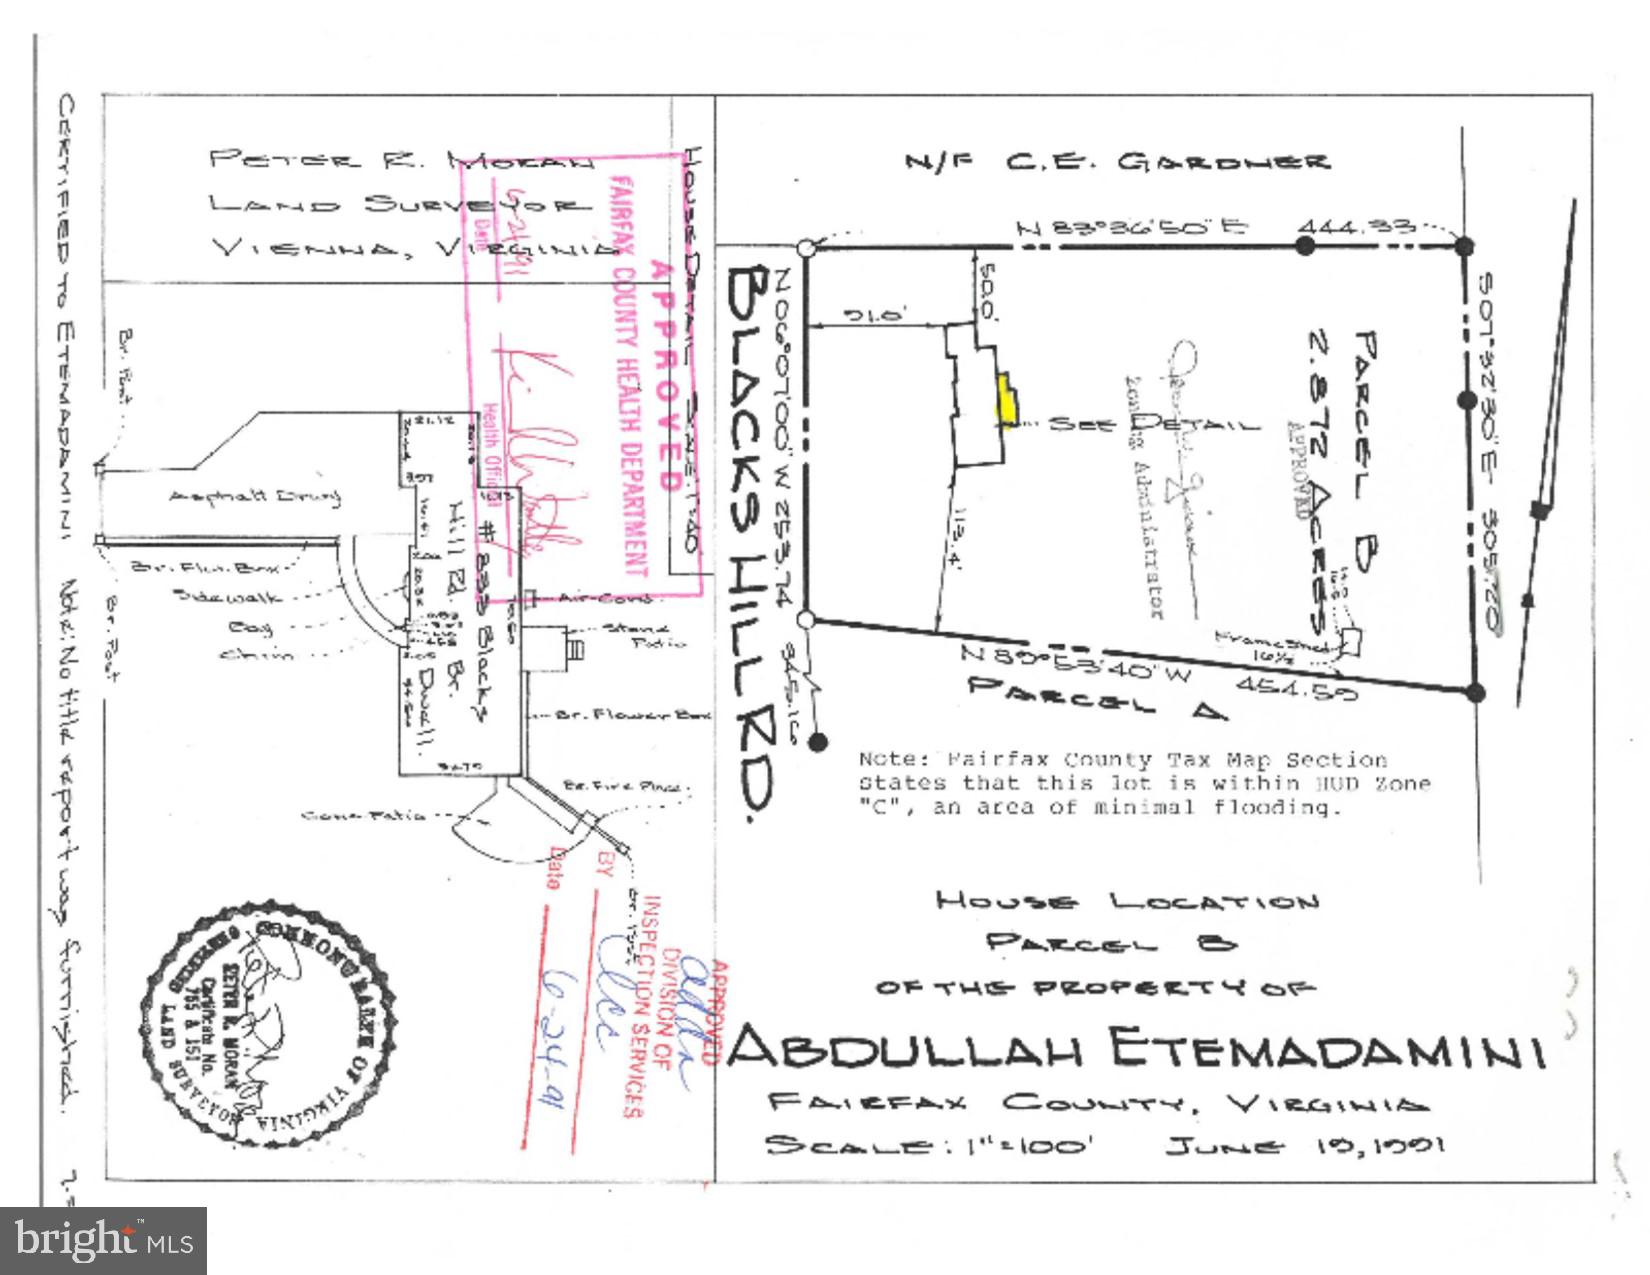 CERTIFIED TO ETEMADAMINI Note: No title report was furnished.
PETER R. MORAN
LAND SURVEYOR
VIENNA, VIRGINIA
HOUSE DETAIL SCALE: 1"=40'
APPROVED
FAIRFAX COUNTY HEALTH DEPARTMENT
6-21-91
Date
Health Official
Br. Post
Asphalt Drwy
Br. Flwr. Box
Sidewalk
Bay
Chim
Br. Post
21.12
# 833 Blacks
Hill Rd.
Br.
Dwell.
Air-Cond.
Stone
Patio
Br. Flower Box
Br. Fire Place
Conc. Patio
Br. Post
APPROVED
DIVISION OF
INSPECTION SERVICES
BY
Date
6-24-91
COMMONWEALTH OF VIRGINIA
CERTIFIED
PETER R. MORAN
Certificate No.
LAND SURVEYOR
N/F C.E. GARDNER
N 83°36'50" E 444.33
S 07°32'30" E 305.20
N 06°07'00" W 253.74
N 89°53'40" W 454.59
345.16
50.0'
51.0'
113.4'
SEE DETAIL
Zoning Administrator
APPROVED
PARCEL B
2.872 ACRES
Frame Shed
PARCEL A
BLACKS HILL RD.
Note: Fairfax County Tax Map Section
states that this lot is within HUD Zone
"C", an area of minimal flooding.
HOUSE LOCATION
PARCEL B
OF THE PROPERTY OF
ABDULLAH ETEMADAMINI
FAIRFAX COUNTY, VIRGINIA
SCALE: 1"=100' JUNE 19, 1991
bright MLS